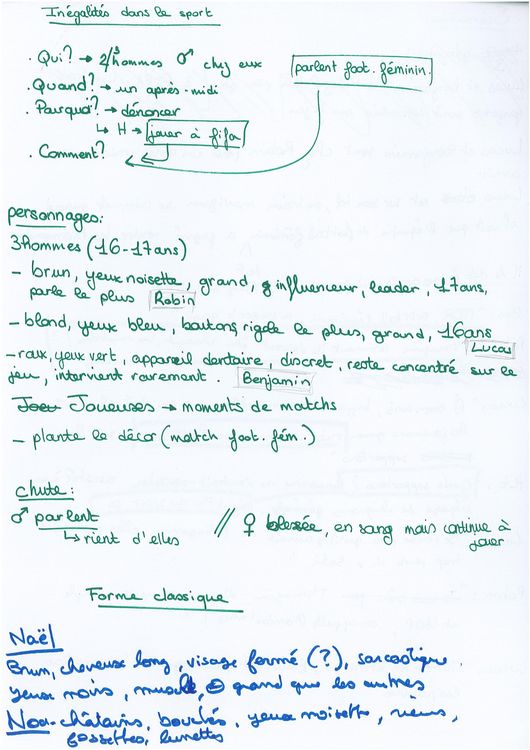 Inégalités dans le sport
. Qui? → 2/3 hommes ♂ chez eux
parlent foot. féminin.
. Quand? → un après-midi
. Pourquoi? → dénoncer
↳ H → jouer à fifa
. Comment?
personnages:
3 hommes (16-17 ans)
- brun, yeux noisette, grand, influenceur, leader, 17 ans,
parle le plus Robin
- blond, yeux bleu, boutons, rigole le plus, grand, 16 ans
Lucas
- roux, yeux vert, appareil dentaire, discret, reste concentré sur le
jeu, intervient rarement. Benjamin
Joueuses → moments de matchs
- plante le décor (match foot. fém.)
chute:
♂ parlent // ♀ blessée, en sang mais continue à
jouer
↳ rient d'elles
Forme classique
Naël
Brun, cheveux long, visage fermé (?), sarcastique,
yeux noirs, musclé, grand que les autres
Noa - châtains, bouclés, yeux noisette, rieurs,
fossettes, lunettes